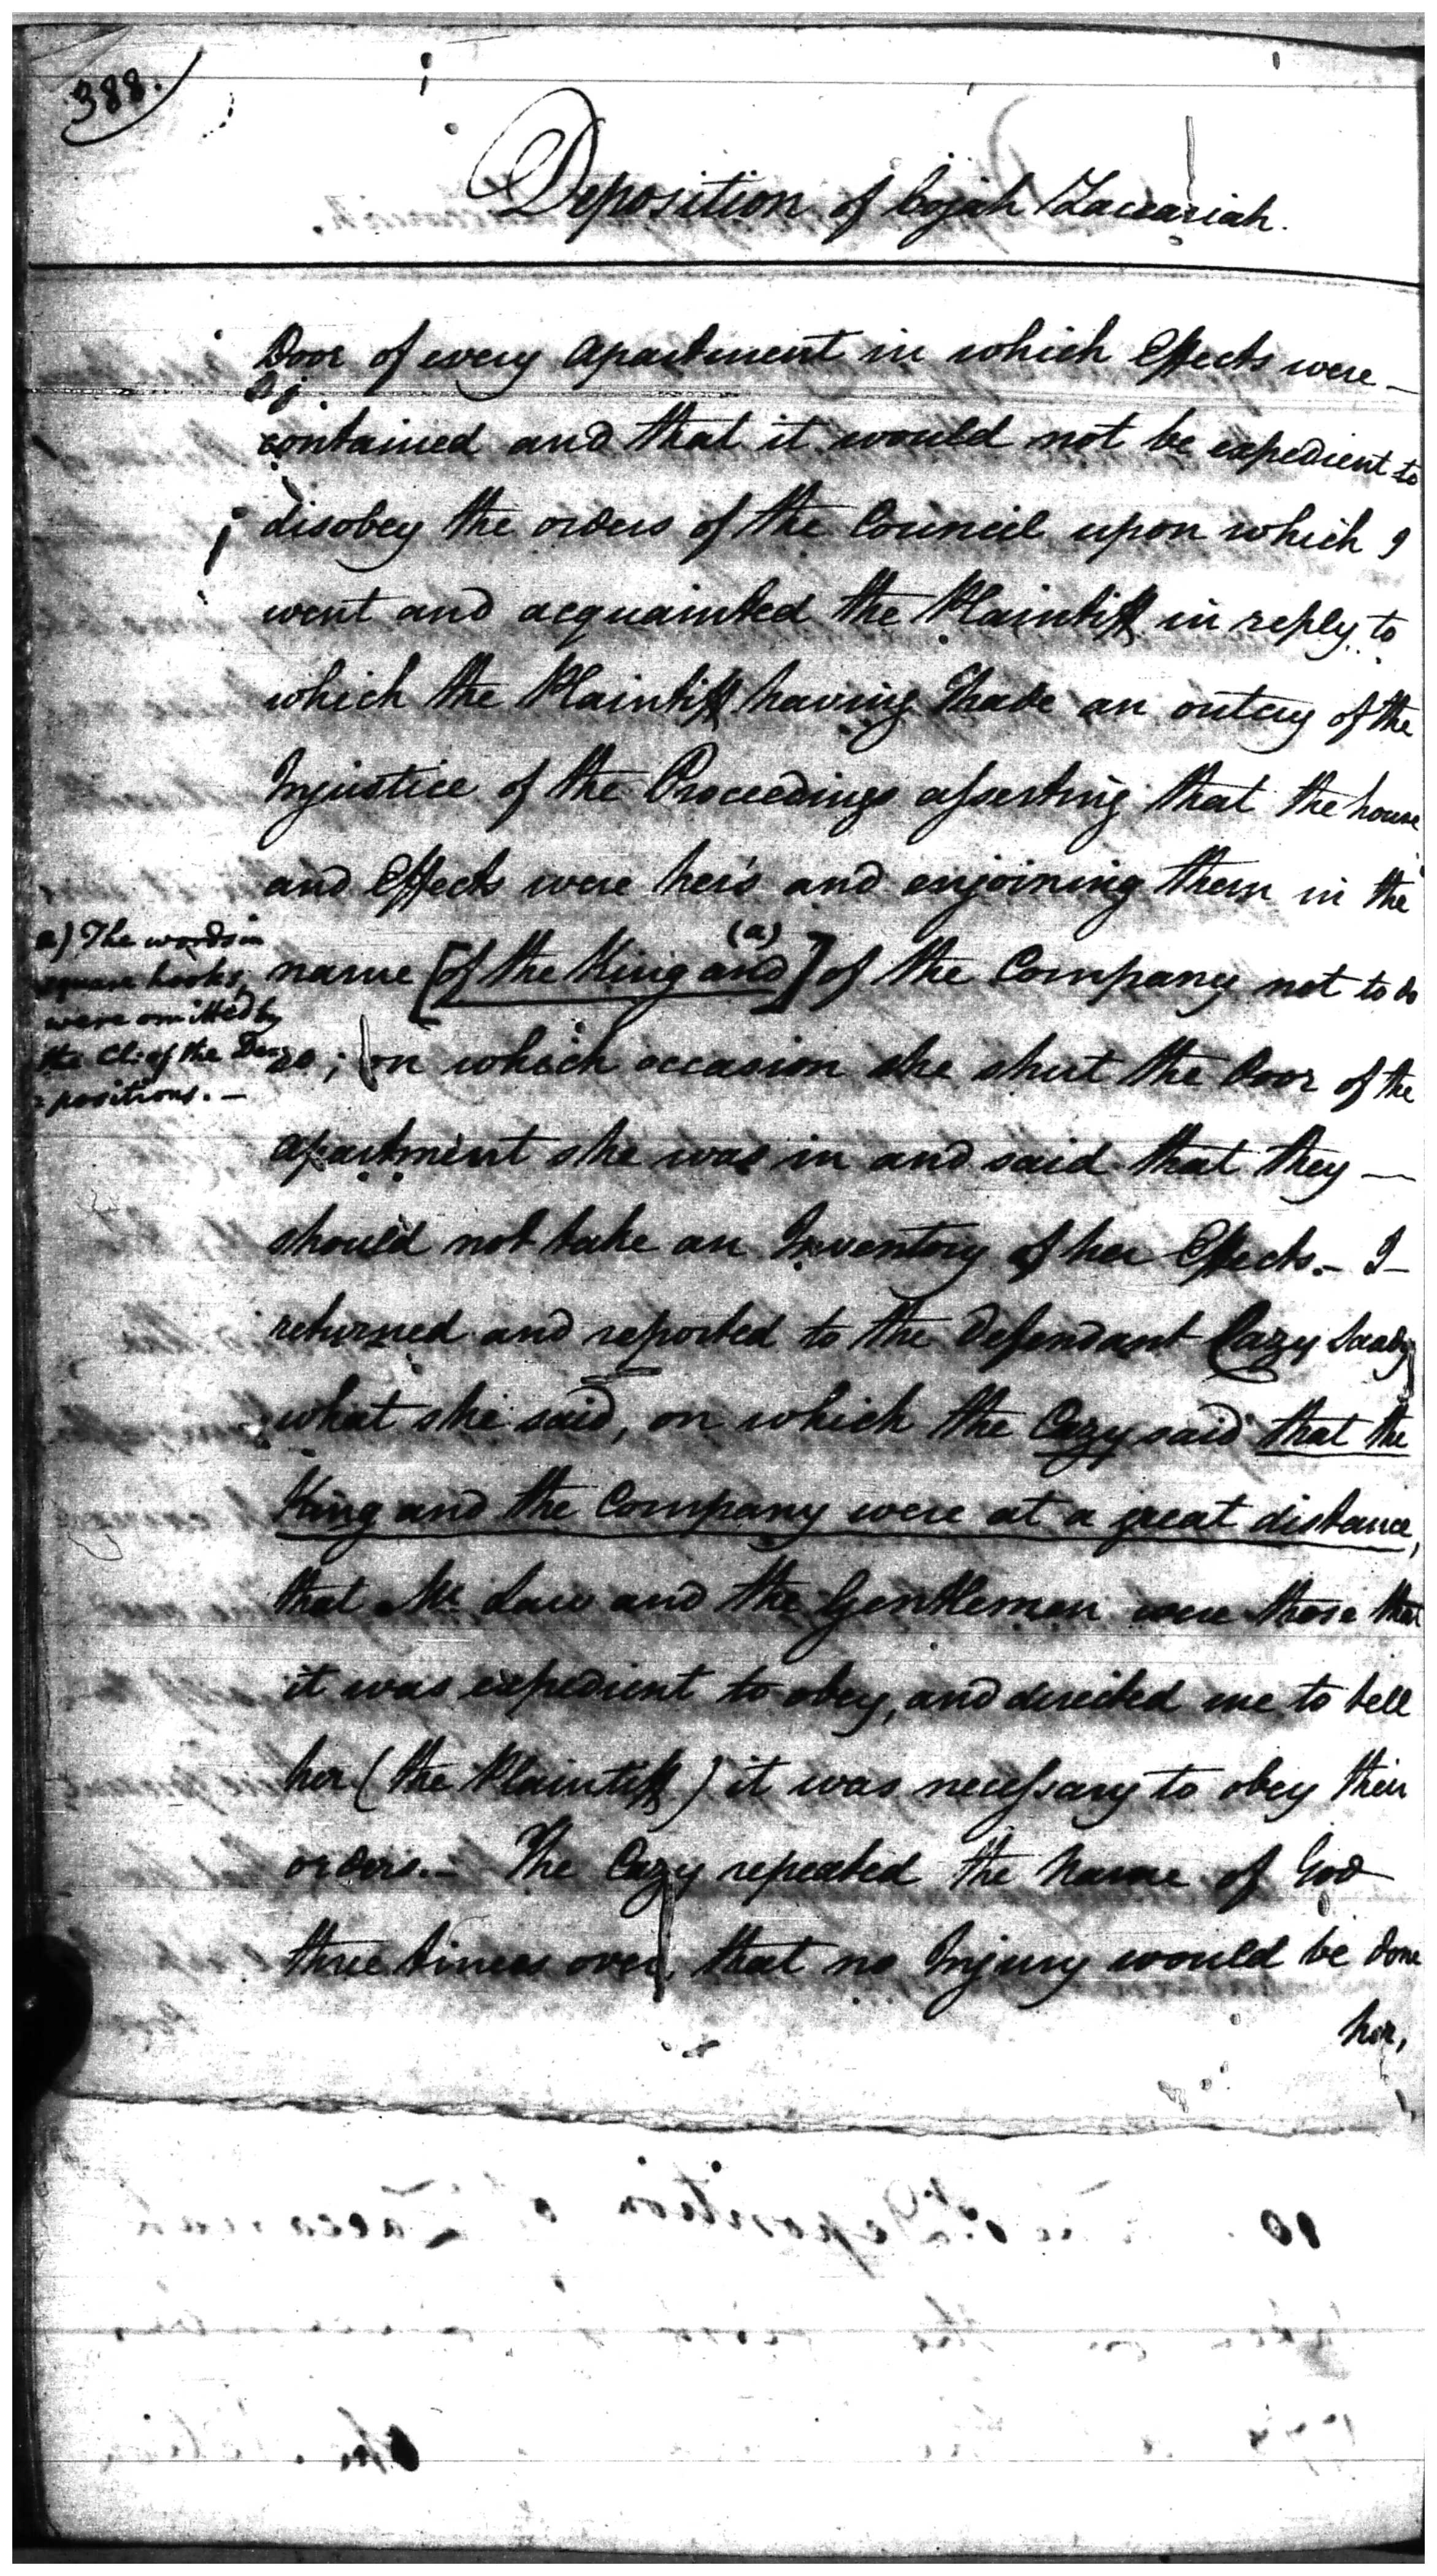 388.
Deposition of Cojah Zaccariah.
Door of every Apartment in which Effects were —
contained and that it would not be expedient to
disobey the orders of the Council upon which I
went and acquainted the Plaintiff in reply to
which the Plaintiff having made an outcry of the
Injustice of the Proceedings asserting that the house
and Effects were her's and enjoining them in the
name [of the King and] (a) of the Company not to do
so; on which occasion she shut the door of the
apartment she was in and said that they —
should not take an Inventory of her Effects. — I —
returned and reported to the Defendant Cazy Saady
what she said, on which the Cazy said that the
King and the Company were at a great distance,
that Mr. Law and the Gentlemen were those that
it was expedient to obey, and directed me to tell
her (the Plaintiff) it was necessary to obey their
orders. — The Cazy repeated the Name of God
three times over, that no Injury would be done
her,
a) The words in
square hooks,
were omitted by
the Cl: of the De=
=positions. —